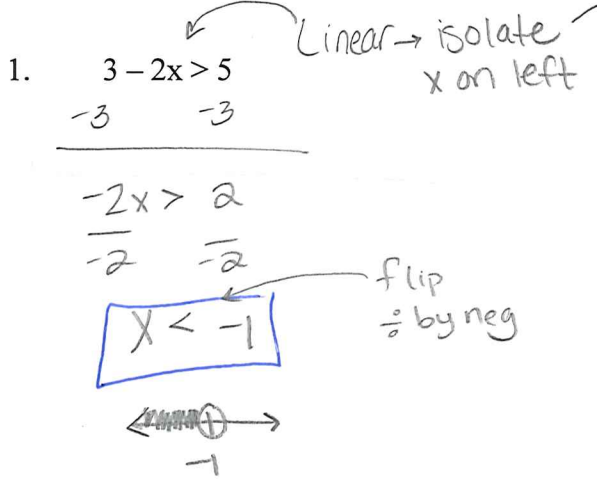 Linear → isolate
x on left
1. 3 – 2x > 5
-3 -3
-2x > 2
-2 -2
flip
÷ by neg
x < -1
-1